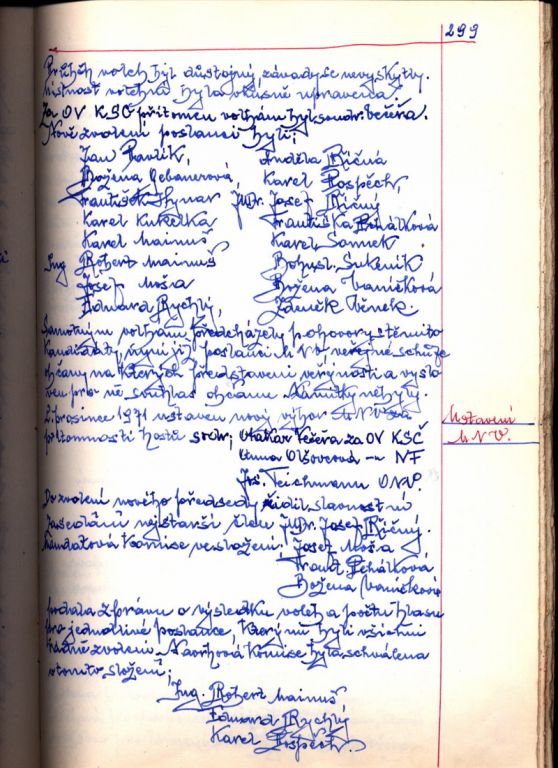 299
Průběh voleb byl důstojný, závady se nevyskytly.
Místnost volební byla vkusně upravena.
Za OV KSČ přítomen volbám byl soudr. Večeřa.
Nově zvolení poslanci byli;
Jan Pavlík, Anděla Říčná
Božena Gebauerová Karel Pospěch,
František Hynar JUDr. Josef Říčný
Karel Kukelka Františka Pehálková
Karel Mainuš Karel Samek
Ing Robert Mainuš Bohusl. Sukeník
Josef Moša Božena Ivaničková
Eduard Rychlý, Zdeněk Věnek.
Samotným volbám předcházely pohovory s těmito
kandidáty nyní již poslanci MNV, veřejné schůze
občanů na kterých představeni veřejnosti a vyslo
ven pro ně souhlas občanů. Námitky nebyly.
prosince 1971 ustaven nový výbor MNV za
přítomnosti hostů soudr; Otakar Večeřa za OV KSČ
Anna Olšoverová -"- NF
Teichmann ONV.
Do zvolení nového předsedy řídil slavnostní
zasedání nejstarší člen JUDr. Josef Říčný.
Mandátová komise ve složení; Josef Moša
Frant. Pehálková
Božena Ivaničková
podala zprávu o výsledku voleb a počtu hlasů
pro jednotlivé poslance, kterými byli všichni
řádně zvoleni. Návrhová komise byla schválena
v tomto složení;
Ing. Robert Mainuš
Eduard Rychlý
Karel Pospěch.
Ustavení
MNV.